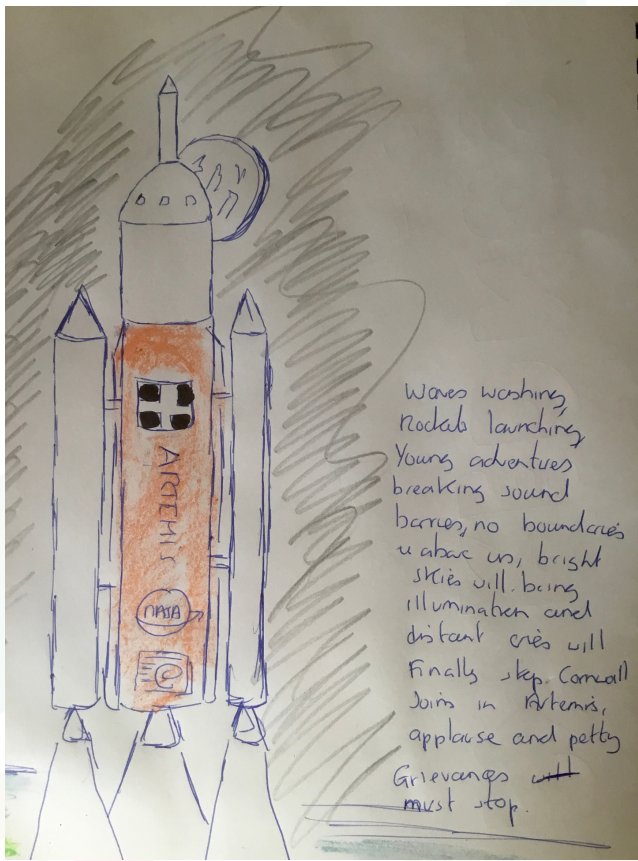 ARTEMIS
NASA
Waves washing,
Rockets launching,
Young adventures
breaking sound
barries, no boundaries
above us, bright
skies will bring
illumination and
distant cries will
Finally stop. Cornwall
Joins in Artemis,
applause and petty
Grievances will
must stop.